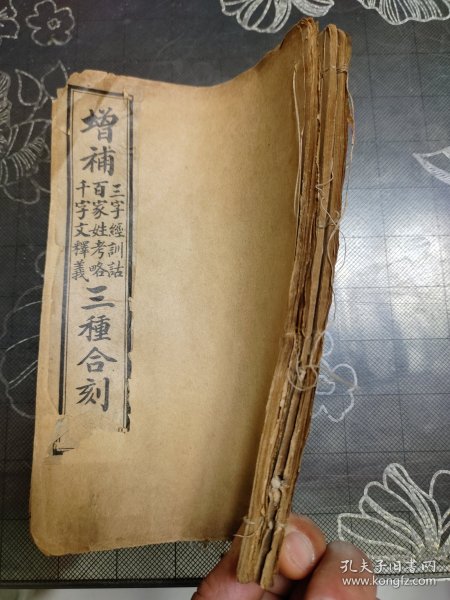 增補
三字經訓詁
百家姓考略
千字文釋義
三種合刻
孔夫子旧书网
www.kongfz.com